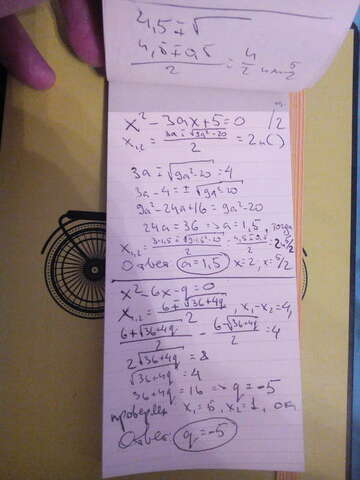 4,5 ∓ √
(4,5 ∓ 0,5)/2 = 4/2 или 5/2
x² − 3ax + 5 = 0 /2
x₁,₂ = (3a ∓ √(9a²−20))/2 = 2 и ( )
3a ∓ √(9a²−20) = 4
3a − 4 = ± √(9a²−20)
9a² − 24a + 16 = 9a² − 20
24a = 36 => a = 1,5, тогда
x₁,₂ =
Ответ a = 1,5 x = 2, x = 5/2
x² − 6x − q = 0
x₁,₂ = (6 ∓ √(36+4q))/2, x₁ − x₂ = 4,
(6 + √(36+4q))/2 − (6 − √(36+4q))/2 = 4
2√(36+4q) = 8
√(36+4q) = 4
36 + 4q = 16 => q = −5
проверяем x₁ = 5, x₂ = 1, ок
Ответ: q = −5